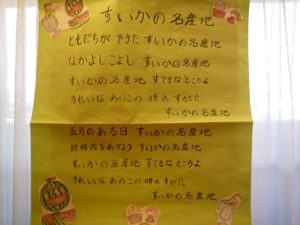 すいかの名産地
ともだちが できた すいかの名産地
なかよしこよし すいかの名産地
すいかの名産地 すてきなところよ
きれいな あのこの 晴れ すがた
すいかの名産地
五月のある日 すいかの名産地
結婚式をあげよう すいかの名産地
すいかの名産地 すてきなところよ
きれいな あのこの 晴れ すがた
すいかの名産地